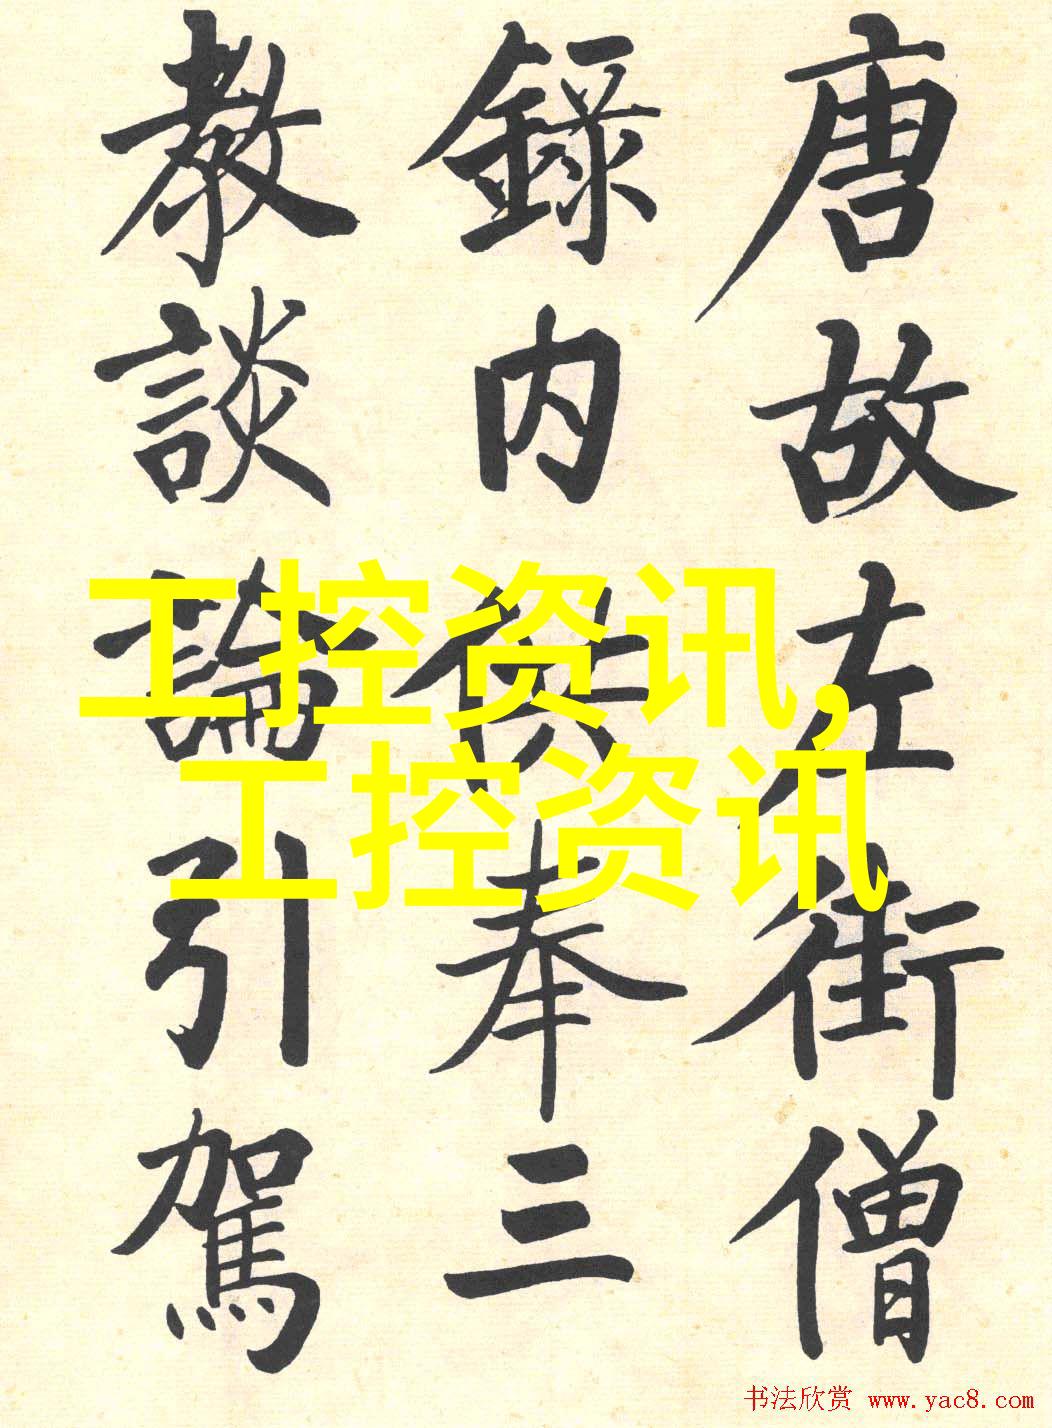 唐故左街僧
錄内供奉三
教談論引駕
工控资讯,
工控资讯
书法欣赏 www.yac8.com